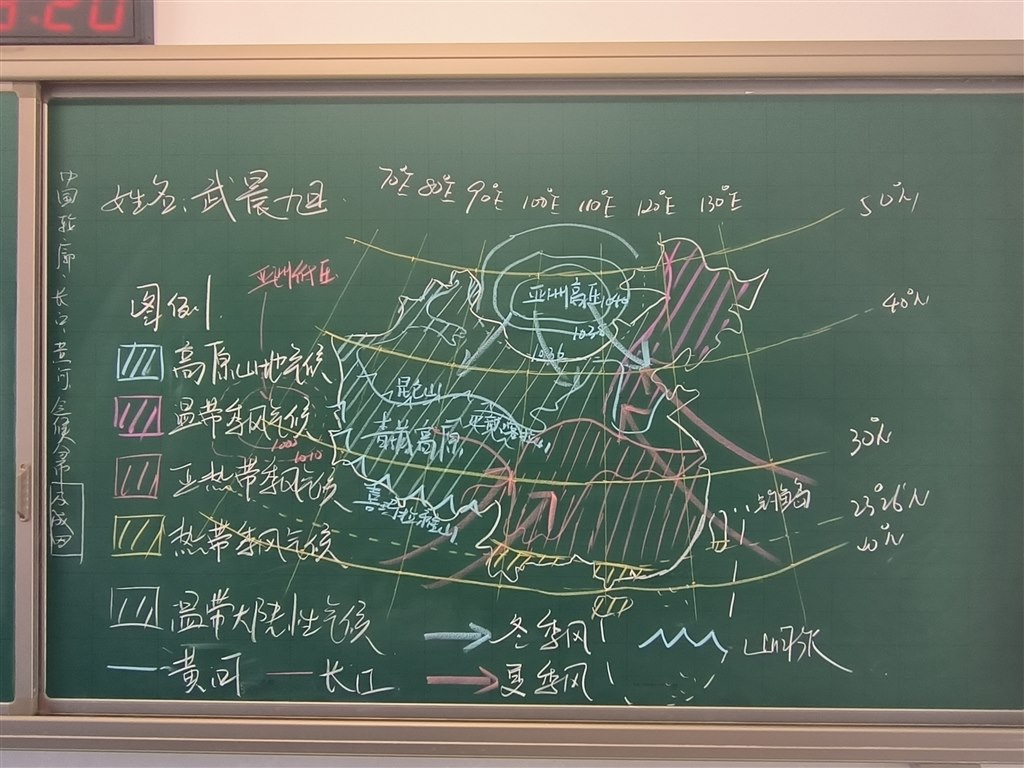 :20
中国轮廓 长江.黄河 气候带
合成图
姓名:武晨旭
70°E 80°E 90°E 100°E 110°E 120°E 130°E
50°N
亚洲低压
图例
亚洲高压 1040
40°N
1038
1036
高原山地气候
昆仑山
温带季风气候
青藏高原
30°N
1000
1010
亚热带季风气候
喜马拉雅山
钓鱼岛
23°26′N
热带季风气候
20°N
温带大陆性气候
冬季风
山脉
黄河
长江
夏季风